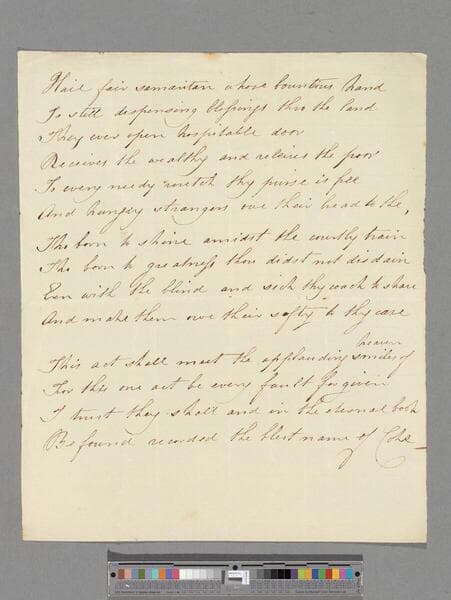 Hail fair samaritan whose bounteous hand
Is still dispensing blessings thro the land
Thy ever open hospitable door
Receives the wealthy and relieves the poor
To every needy wretch thy purse is free
And hungry strangers owe their bread to the,
Tho born to shine amidst the courtly train
Tho born to greatness thou didst not disdain
Een with the blind and sick thy coach to share
And make them owe their safty to thy care
heaven
This act shall meet the applauding smiles of
For this one act be every fault forgiven
I trust they shall and in the eternal book
Be found recorded the blest name of Coke